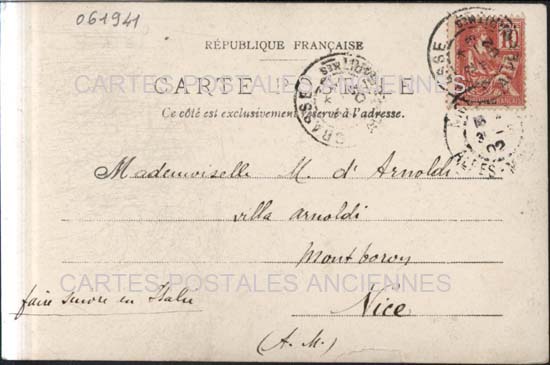 061941
RÉPUBLIQUE FRANÇAISE
CARTES POSTALES ANCIENNES
CARTE POSTALE
GRASSE
10
Ce côté est exclusivement réservé à l'adresse.
Mademoiselle M. d'Arnoldi
villa Arnoldi
Montboron
CARTES POSTALES ANCIENNES
faire suivre en Italie
Nice
(A. M.)